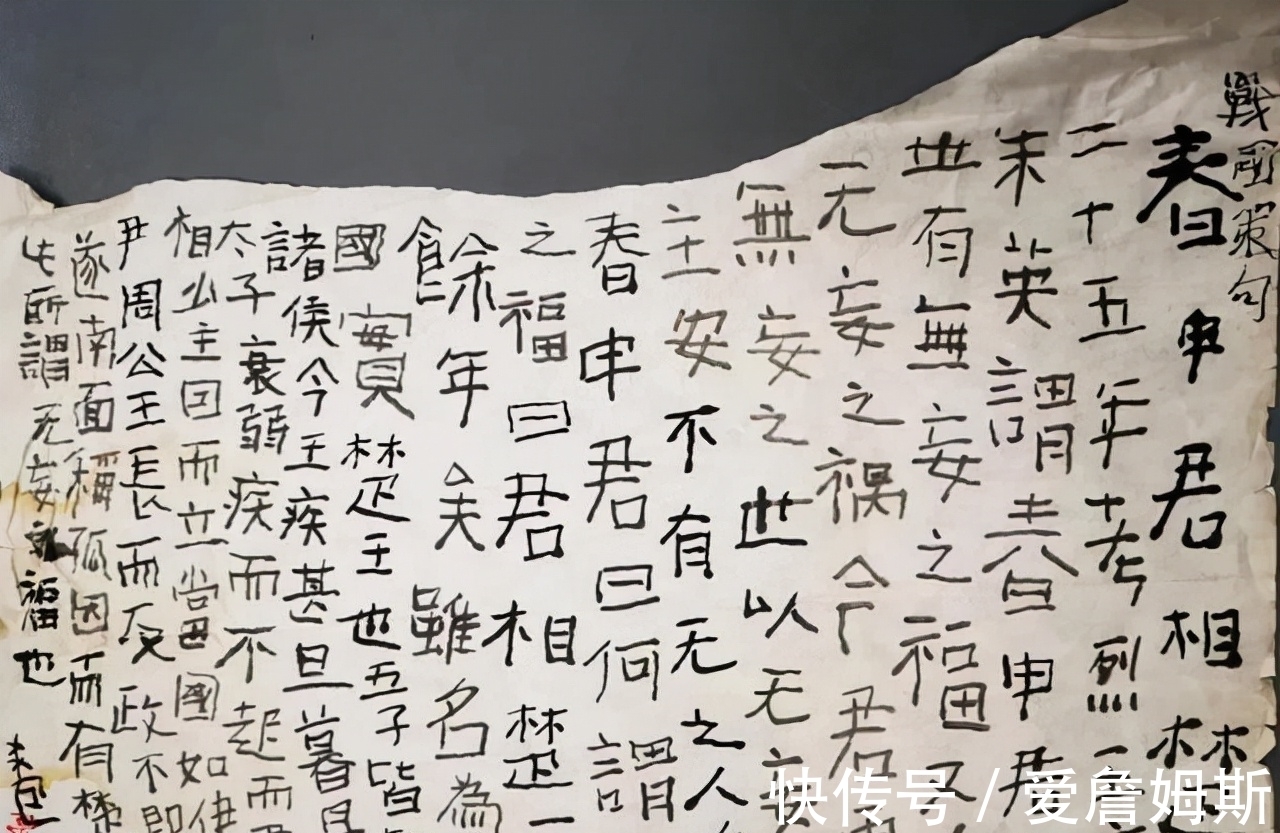 戰國策句
春申君相楚
二十五年考烈
朱英謂春申君
世有無妄之福又
无妄之祸今君
無妄之世以无妄
主安不有无之人
春申君曰何謂
之福曰君相楚
餘年矣雖名為
國實楚王也五子皆
諸侯今王疾甚旦暮且
太子衰弱疾而不起而
相少主因而立當國如伊
尹周公王長而反政不即
遂南面稱孤因而有楚
此所謂无妄福也
快传号 / 爱詹姆斯